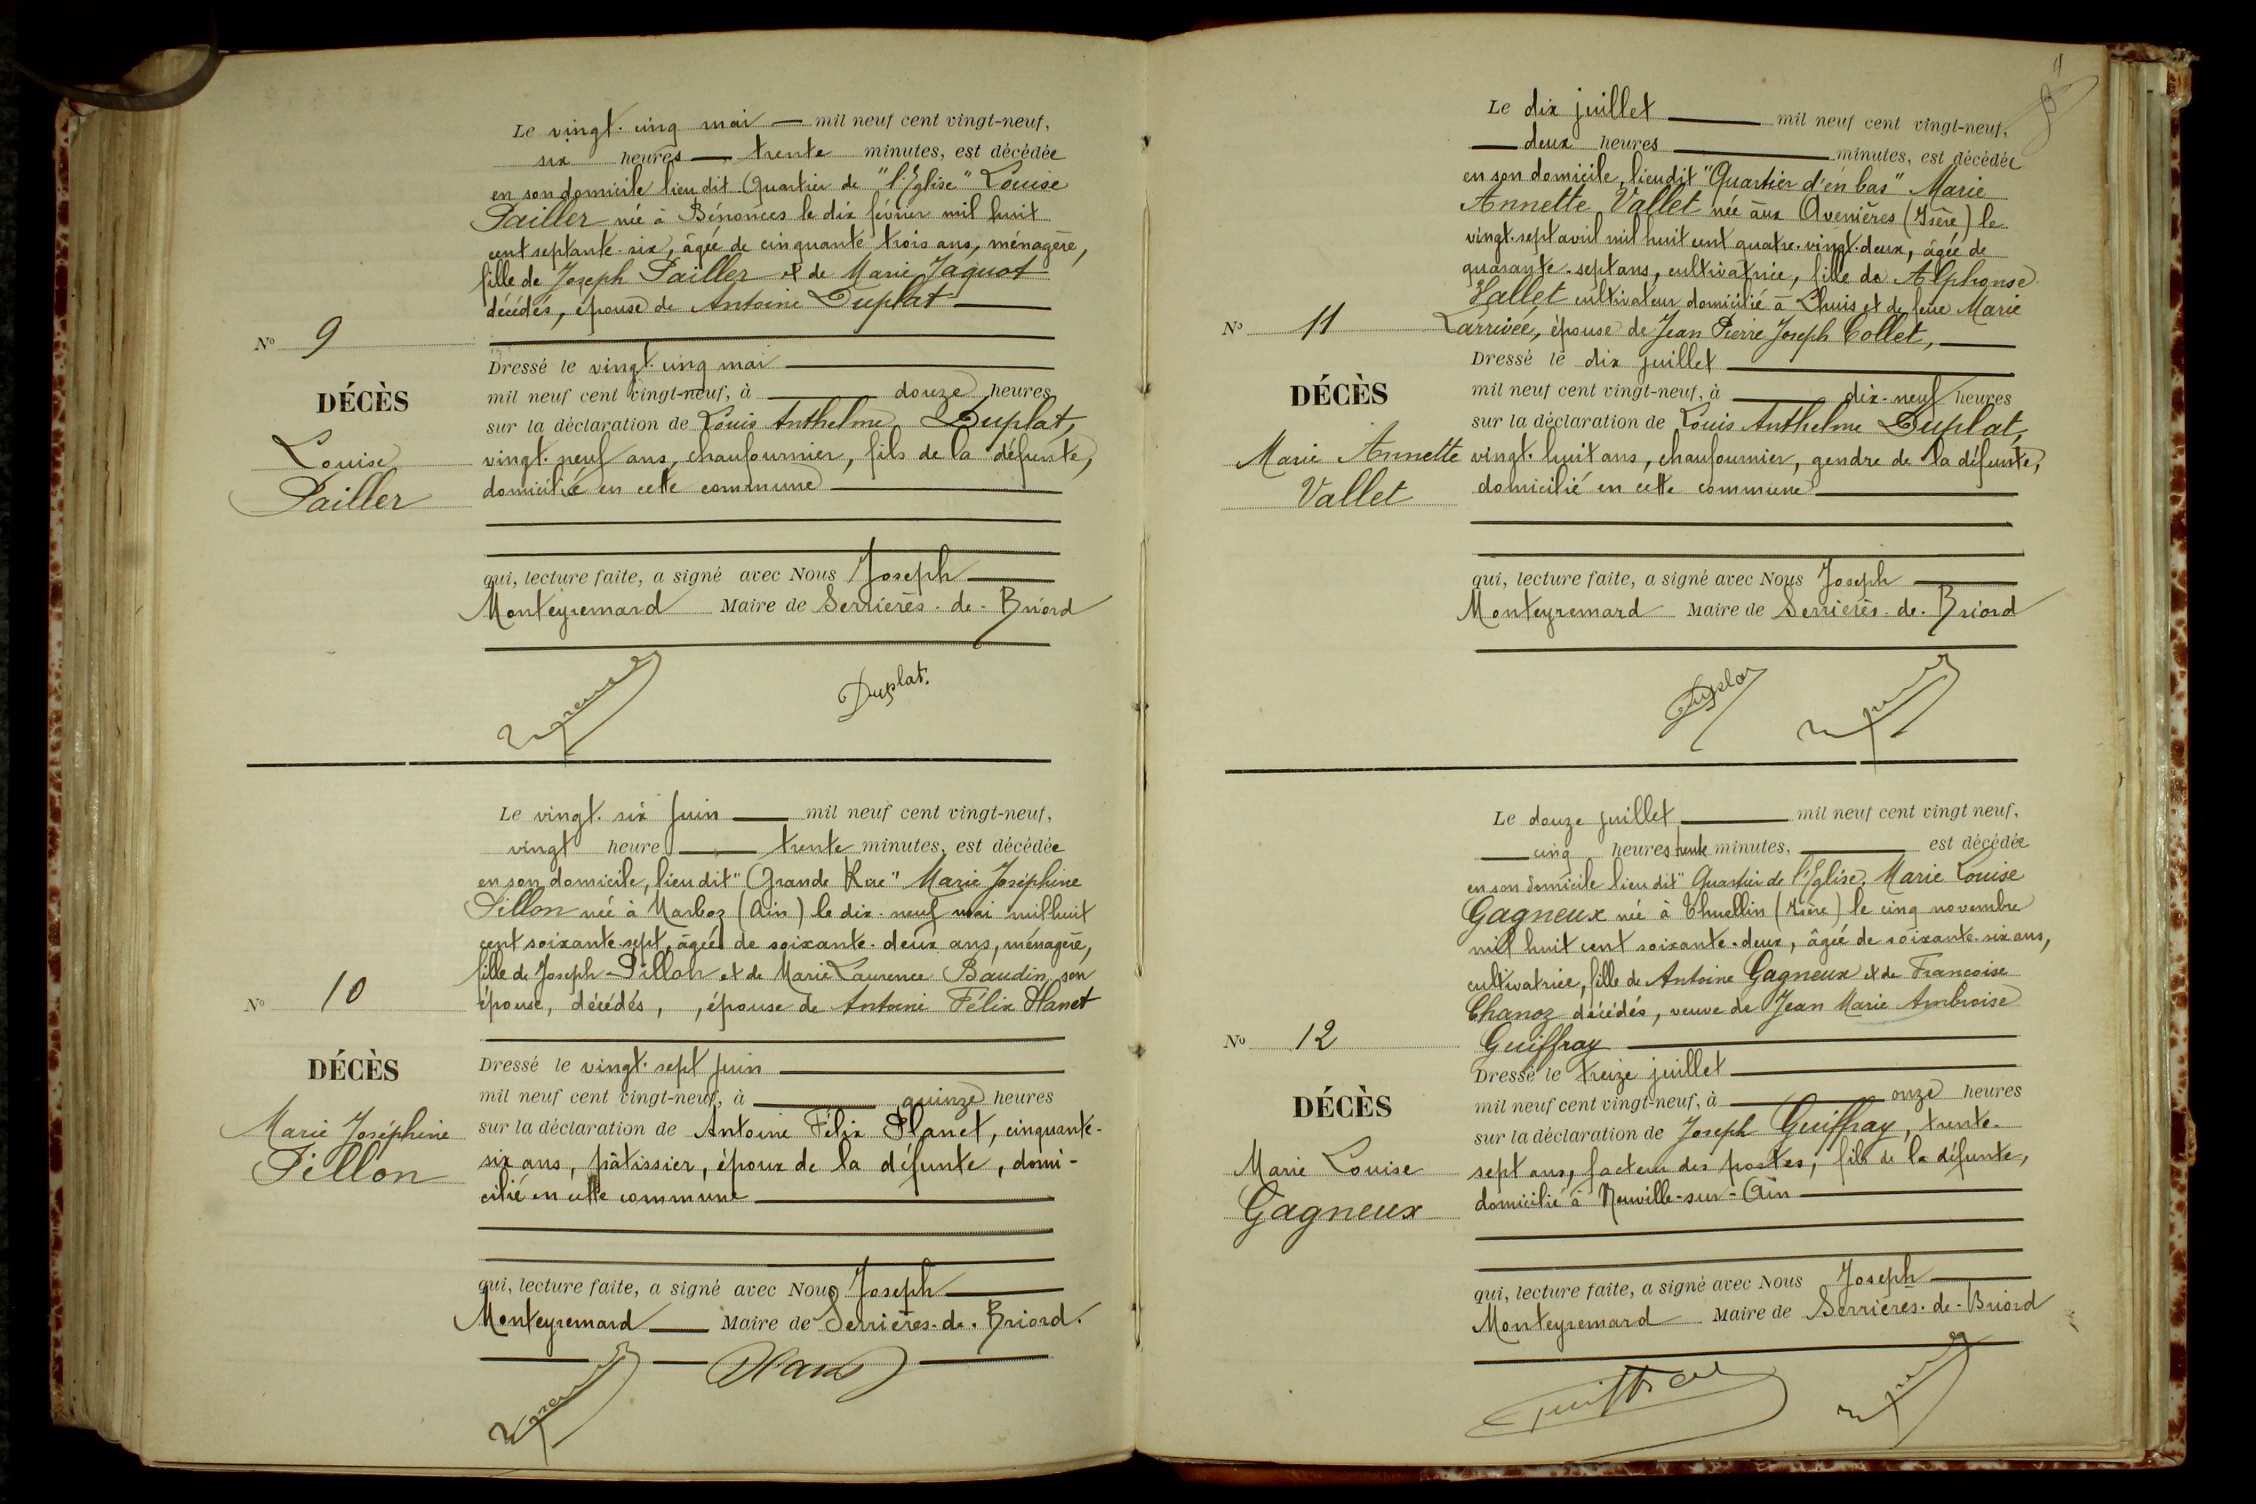 Le vingt-cinq mai — mil neuf cent vingt-neuf,
six heures — trente minutes, est décédée
en son domicile lieu dit Quartier de "l'Eglise" Louise
Pailler née à Bénonces le dix février mil huit
cent septante-six, âgée de cinquante trois ans, ménagère,
fille de Joseph Pailler et de Marie Jaquot
décédés, épouse de Antoine Duplat
N° 9
Dressé le vingt-cinq mai
mil neuf cent vingt-neuf, à douze heures
DÉCÈS
sur la déclaration de Louis Anthelme Duplat,
Louise
vingt-neuf ans, chaufournier, fils de la défunte,
Pailler
domicilié en cette commune
qui, lecture faite, a signé avec Nous Joseph
Monteyremard Maire de Serrières-de-Briord
Duplat.
Le vingt-six juin — mil neuf cent vingt-neuf,
vingt heure — trente minutes, est décédée
en son domicile, lieu dit "Grande Rue" Marie Joséphine
Pillon née à Marboz (Ain) le dix-neuf mai mil huit
cent soixante-sept, âgée de soixante-deux ans, ménagère,
fille de Joseph Pillon et de Marie Laurence Baudin, son
épouse, décédés, , épouse de Antoine Félix Hanet
N° 10
Dressé le vingt-sept juin
DÉCÈS
mil neuf cent vingt-neuf, à quinze heures
Marie Joséphine
sur la déclaration de Antoine Félix Hanet, cinquante-
Pillon
six ans, pâtissier, époux de la défunte, domi-
cilié en cette commune
qui, lecture faite, a signé avec Nous Joseph
Monteyremard — Maire de Serrières-de-Briord.
Le dix juillet — mil neuf cent vingt-neuf,
— deux heures — minutes, est décédée
en son domicile, lieudit "Quartier d'en bas" Marie
Annette Vallet née aux Avenières (Isère) le
vingt-sept avril mil huit cent quatre-vingt-deux, âgée de
quarante-sept ans, cultivatrice, fille de Alphonse
Vallet cultivateur domicilié à Lhuis et de feue Marie
Larrivée, épouse de Jean Pierre Joseph Collet,
N° 11
Dressé le dix juillet
DÉCÈS
mil neuf cent vingt-neuf, à dix-neuf heures
sur la déclaration de Louis Anthelme Duplat,
Marie Annette
vingt-huit ans, chaufournier, gendre de la défunte,
Vallet
domicilié en cette commune
qui, lecture faite, a signé avec Nous Joseph
Monteyremard Maire de Serrières-de-Briord
Duplat
Le douze juillet — mil neuf cent vingt neuf,
— cinq heures trente minutes, — est décédée
en son domicile lieu dit "Quartier de l'Eglise, Marie Louise
Gagneux née à Thuellin (Isère) le cinq novembre
mil huit cent soixante-deux, âgée de soixante-six ans,
cultivatrice, fille de Antoine Gagneux et de Françoise
Chanoz décédés, veuve de Jean Marie Ambroise
Guiffray
N° 12
Dressé le treize juillet
DÉCÈS
mil neuf cent vingt-neuf, à onze heures
sur la déclaration de Joseph Guiffray, trente-
Marie Louise
sept ans, facteur des postes, fils de la défunte,
Gagneux
domicilié à Neuville-sur-Ain
qui, lecture faite, a signé avec Nous Joseph
Monteyremard Maire de Serrières-de-Briord
Guiffray